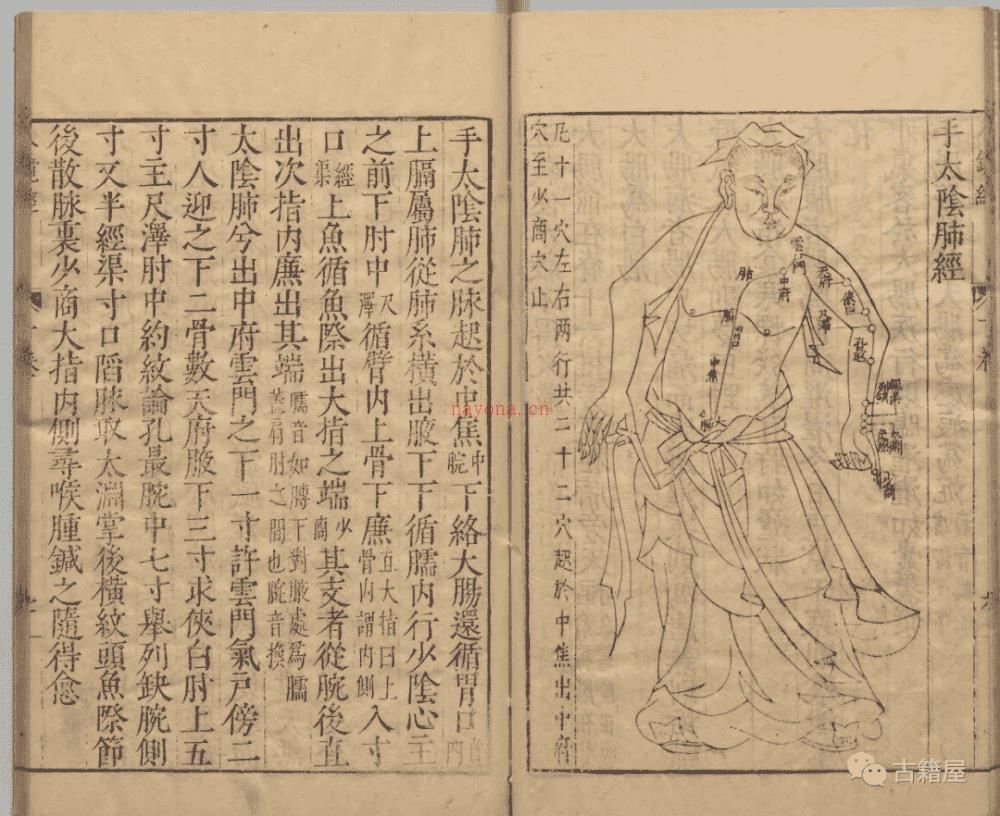 手太陰肺經
雲門
中府
天府
俠白
尺澤
孔最
列缺
經渠
太淵
魚際
少商
肺
胃口
中焦
大腸
凡十一穴左右兩行共二十二穴起於中焦出中府
穴至少商穴止
手太陰肺之脉起於中焦中脘下絡大腸還循胃口
上膈屬肺從肺系橫出腋下下循臑内行少陰心主
之前下肘中尺澤循臂内上骨下廉骨内謂内側入寸
口經渠上魚循魚際出大指之端少商其支者從腕後直
出次指内廉出其端臑音如膊下對腋處爲臑盖肩肘之間也腕音換
太陰肺兮出中府雲門之下一寸許雲門氣戶傍二
寸人迎之下二骨數天府腋下三寸求俠白肘上五
寸主尺澤肘中約紋論孔最腕中七寸舉列缺腕側
寸又半經渠寸口陷脉取太淵掌後橫紋頭魚際節
後散脉裏少商大指内側尋喉腫鍼之隨得愈
nayona.cn
古籍屋